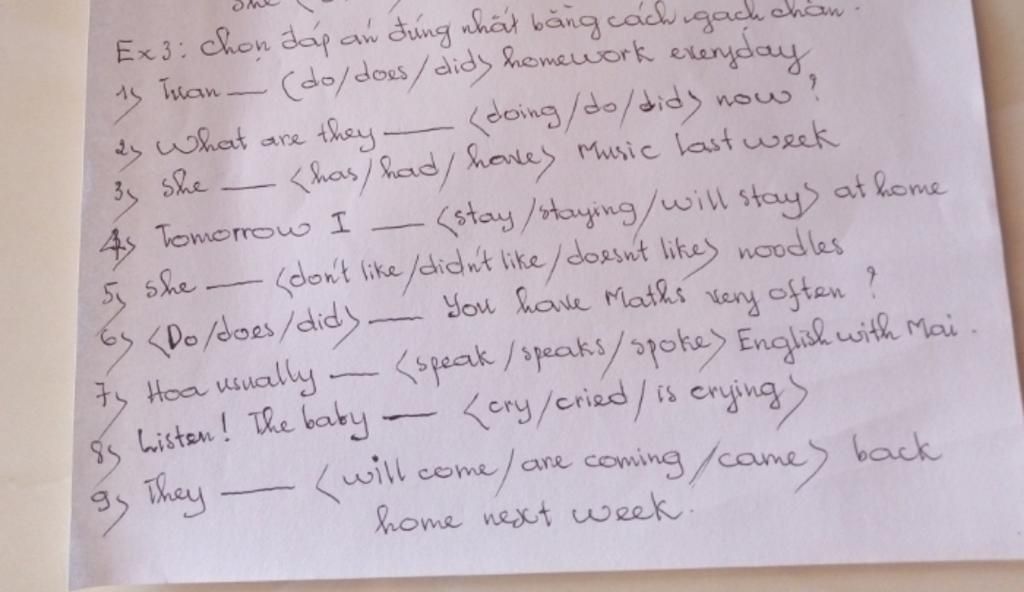 She
Ex 3: Chọn đáp án đúng nhất bằng cách gạch chân.
1) Tuan ___ (do/does/did) homework everyday
2) What are they ___ (doing/do/did) now?
3) She ___ (has/had/have) Music last week
4) Tomorrow I ___ (stay/staying/will stay) at home
5) She ___ (don't like/didn't like/doesnt like) noodles
6) (Do/does/did) ___ You have Maths very often?
7) Hoa usually ___ (speak/speaks/spoke) English with Mai.
8) Listen! The baby ___ (cry/cried/is crying)
9) They ___ (will come/are coming/came) back
home next week.